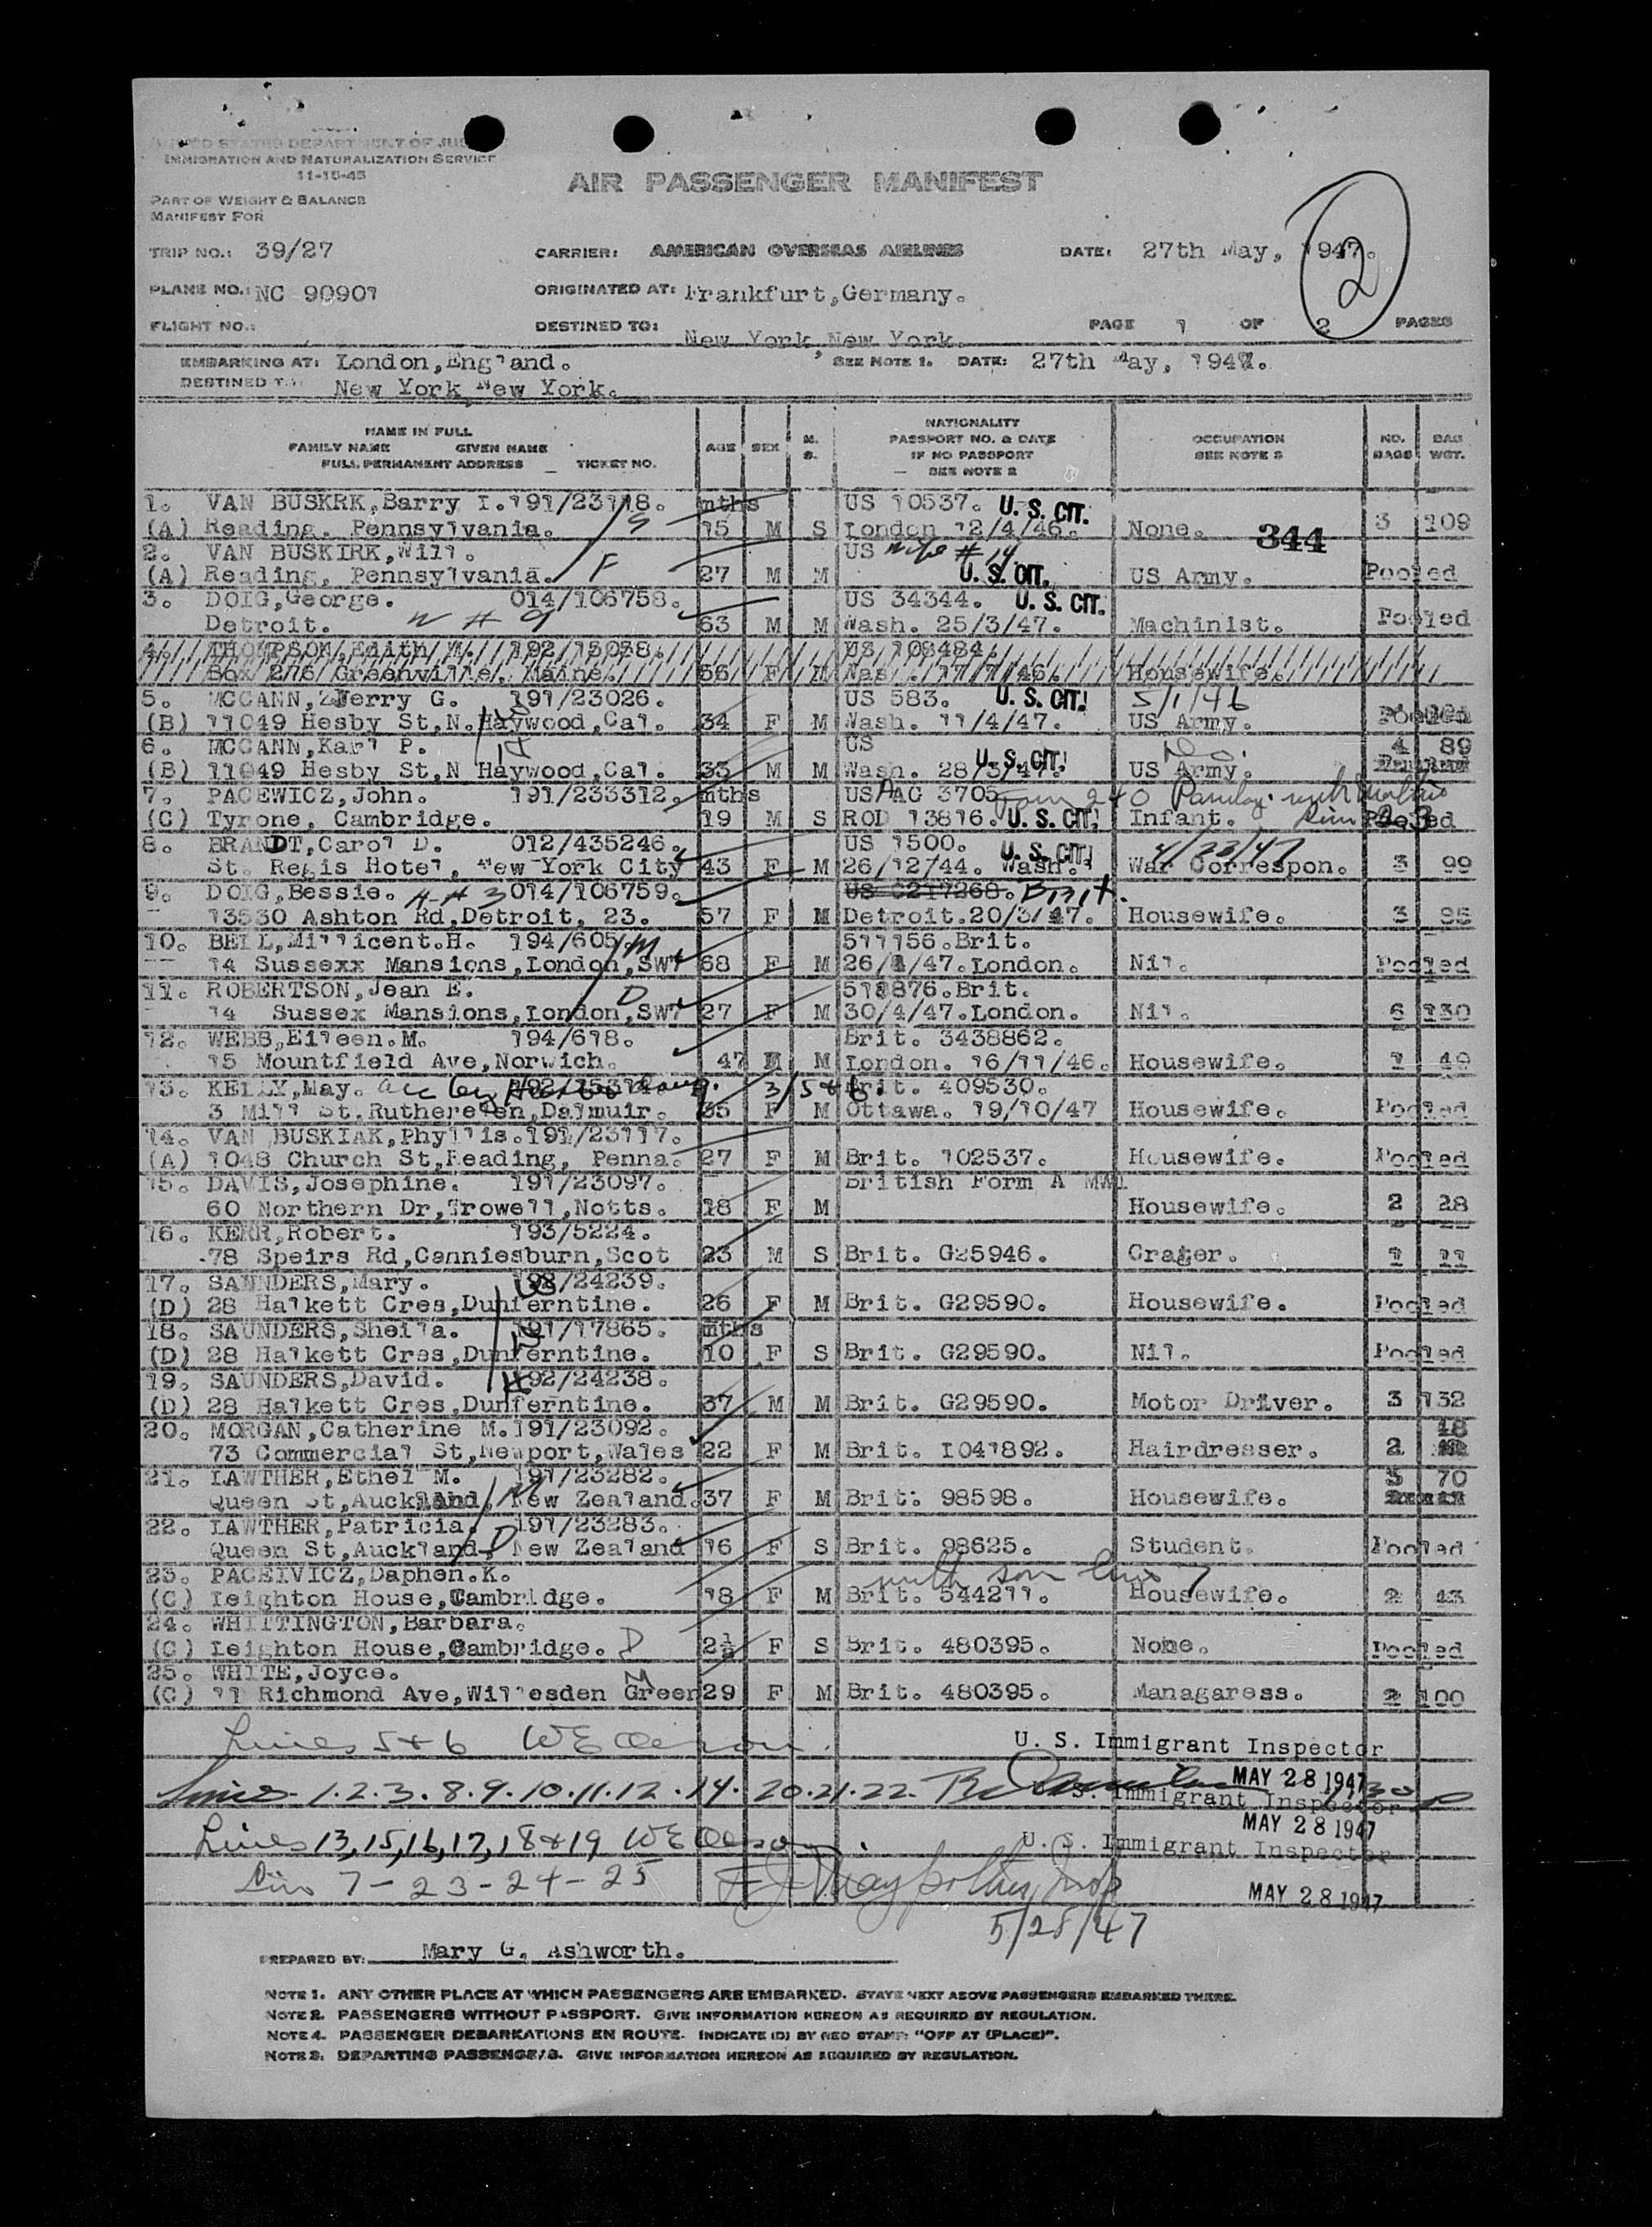 UNITED STATES DEPARTMENT OF JUS
IMMIGRATION AND NATURALIZATION SERVICE
11-15-45
AIR PASSENGER MANIFEST
PART OF WEIGHT & BALANCE
MANIFEST FOR
2
TRIP NO.: 39/27 CARRIER: AMERICAN OVERSEAS AIRLINES DATE: 27th May, 1947.
PLANE NO.: NC 90907 ORIGINATED AT: Frankfurt,Germany.
FLIGHT NO.: DESTINED TO: New York,New York. PAGE 1 OF 2 PAGES
EMBARKING AT: London,England. SEE NOTE 1. DATE: 27th May, 1947.
DESTINED TO: New York,New York.
NAME IN FULL
FAMILY NAME GIVEN NAME
FULL PERMANENT ADDRESS TICKET NO. AGE SEX M. S. NATIONALITY PASSPORT NO. & DATE IF NO PASSPORT SEE NOTE 2 OCCUPATION SEE NOTE 3 NO. BAGS BAG WGT.
1. VAN BUSKRK,Barry I.191/23118. mths US 10537. U. S. CIT.
(A) Reading. Pennsylvania. 15 M S London 12/4/46. None. 344 3 109
2. VAN BUSKIRK,Will. US wife # 14
(A) Reading, Pennsylvania. F 27 M M U. S. CIT. US Army. Pooled
3. DOIG,George. 014/106758. US 34344. U. S. CIT.
Detroit. W # 9 63 M M Wash. 25/3/47. Machinist. Pooled
4. THOMPSON,Edith M. 192/15038. US 108484.
Box 276 Greenville, Maine. 56 F M Was. 17/7/46. Housewife.
5. MCCANN,Jerry G. 191/23026. US 583. U. S. CIT. 5/1/46
(B) 11049 Hesby St,N.Haywood,Cal. 34 F M Wash. 11/4/47. US Army. Pooled
6. MCCANN,Karl P. US U. S. CIT. 4 89
(B) 11049 Hesby St,N Haywood,Cal. 33 M M Wash. 28/3/47. US Army.
7. PACEWICZ,John. 191/233312. mths US AAG 3705
(C) Tyrone, Cambridge. 19 M S ROD 13816. U. S. CIT. Infant. Pooled
8. BRANDT,Carol D. 012/435246. US 1500. U. S. CIT. 4/23/47
St. Regis Hotel, New York City 43 F M 26/12/44. Wash. War Correspon. 3 99
9. DOIG,Bessie. H # 3 014/106759. US C217268. Brit.
13530 Ashton Rd,Detroit, 23. 57 F M Detroit.20/3/47. Housewife. 3 95
10. BELL,Millicent.H. 194/605. M 511156.Brit.
14 Sussexx Mansions,London,SW7 68 F M 26/4/47.London. Nil. Pooled
11. ROBERTSON,Jean E. D 518876.Brit.
14 Sussex Mansions,London,SW7 27 F M 30/4/47.London. Nil. 6 130
12. WEBB,Eileen.M. 194/618. Brit. 3438862.
15 Mountfield Ave,Norwich. 47 M London. 16/11/46. Housewife. 1 49
13. KELLY,May. Brit. 409530.
3 Mill St.Rutherelen,Dalmuir. 35 F M Ottawa. 19/10/47 Housewife. Pooled
14. VAN BUSKIAK,Phyllis.191/23117.
(A) 1048 Church St,Reading, Penna. 27 F M Brit. 102537. Housewife. Pooled
15. DAVIS,Josephine. 191/23097. British Form A MWD
60 Northern Dr,Trowell,Notts. 18 F M Housewife. 2 28
16. KERR,Robert. 193/5224.
78 Speirs Rd,Canniesburn,Scot 23 M S Brit. G25946. Crater. 1 11
17. SAUNDERS,Mary. 192/24239.
(D) 28 Halkett Cres,Dunferntine. 26 F M Brit. G29590. Housewife. Pooled
18. SAUNDERS,Sheila. 191/17865. mths
(D) 28 Halkett Cres,Dunferntine. 10 F S Brit. G29590. Nil. Pooled
19. SAUNDERS,David. 192/24238.
(D) 28 Halkett Cres,Dunferntine. 37 M M Brit. G29590. Motor Driver. 3 132
20. MORGAN,Catherine M.191/23092. 48
73 Commercial St,Newport,Wales 22 F M Brit. I041892. Hairdresser. 2
21. LAWTHER,Ethel M. 191/23282. 5 70
Queen St,Auckland, New Zealand. 37 F M Brit. 98598. Housewife.
22. LAWTHER,Patricia. 191/23283.
Queen St,Auckland, New Zealand 16 F S Brit. 98625. Student. Pooled
23. PACEIVICZ,Daphen.K. with son line 7
(C) Leighton House,Cambridge. 18 F M Brit. 544211. Housewife. 2 43
24. WHITINGTON,Barbara.
(C) Leighton House,Cambridge. D 2½ F S Brit. 480395. None. Pooled
25. WHITE,Joyce. M
(C) 11 Richmond Ave,Willesden Green 29 F M Brit. 480395. Managaress. 2 100
Lines 5 & 6
U. S. Immigrant Inspector
MAY 28 1947
Lines 1.2.3.8.9.10.11.12.14.20.21.22.
U. S. Immigrant Inspector
MAY 28 1947
Lines 13,15,16,17,18 & 19
U. S. Immigrant Inspector
Line 7-23-24-25
MAY 28 1947
5/28/47
PREPARED BY: Mary G. Ashworth.
NOTE 1. ANY OTHER PLACE AT WHICH PASSENGERS ARE EMBARKED. STATE NEXT ABOVE PASSENGERS EMBARKED THERE.
NOTE 2. PASSENGERS WITHOUT PASSPORT. GIVE INFORMATION HEREON AS REQUIRED BY REGULATION.
NOTE 4. PASSENGER DEBARKATIONS EN ROUTE. INDICATE (D) BY RED STAMP: "OFF AT (PLACE)".
NOTE 3. DEPARTING PASSENGERS. GIVE INFORMATION HEREON AS REQUIRED BY REGULATION.